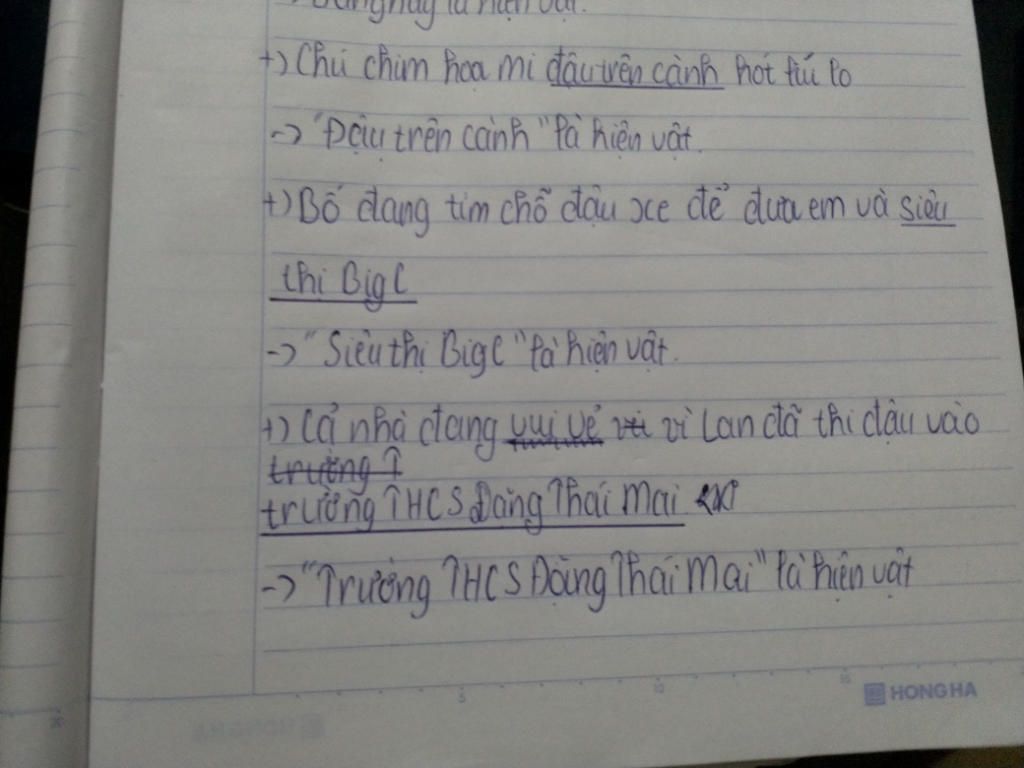 là hiện vật.
+) Chú chim họa mi đậu trên cành hót líu lo
-> "Đậu trên cành" là hiện vật.
+) Bố đang tìm chỗ đậu xe để đưa em và siêu
thị BigC
-> "Siêu thị BigC" là hiện vật.
+) Cả nhà đang vui vẻ vì Lan đã thi đậu vào
trường T
trường THCS Đặng Thai Mai
-> "Trường THCS Đặng Thai Mai" là hiện vật
5 10 15
HONG HA